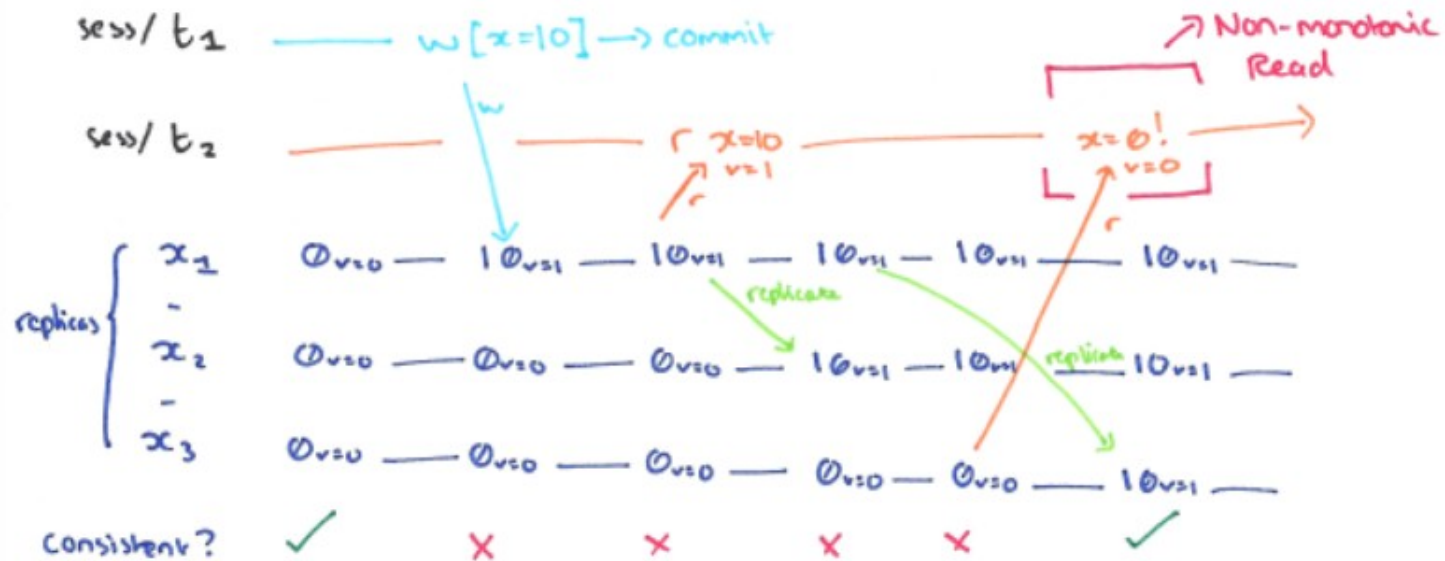 sess/ t1 w[x=10] → commit
Non-monotonic
Read
w
sess/ t2 r x=10 x=0!
v=1 v=0
r r
x1 0v=0 10v=1 10v=1 10v=1 10v=1 10v=1
replicate
-
replicas
x2 0v=0 0v=0 0v=0 10v=1 10v=1 10v=1
replicate
-
x3 0v=0 0v=0 0v=0 0v=0 0v=0 10v=1
consistent? ✓ x x x x ✓